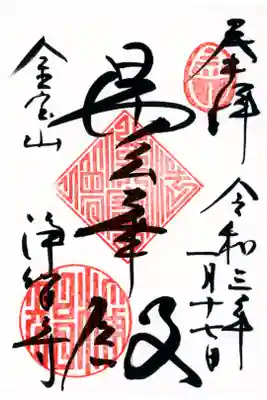 奉拝
令和三年
一月十七日
曇華殿
金宝山
浄智寺